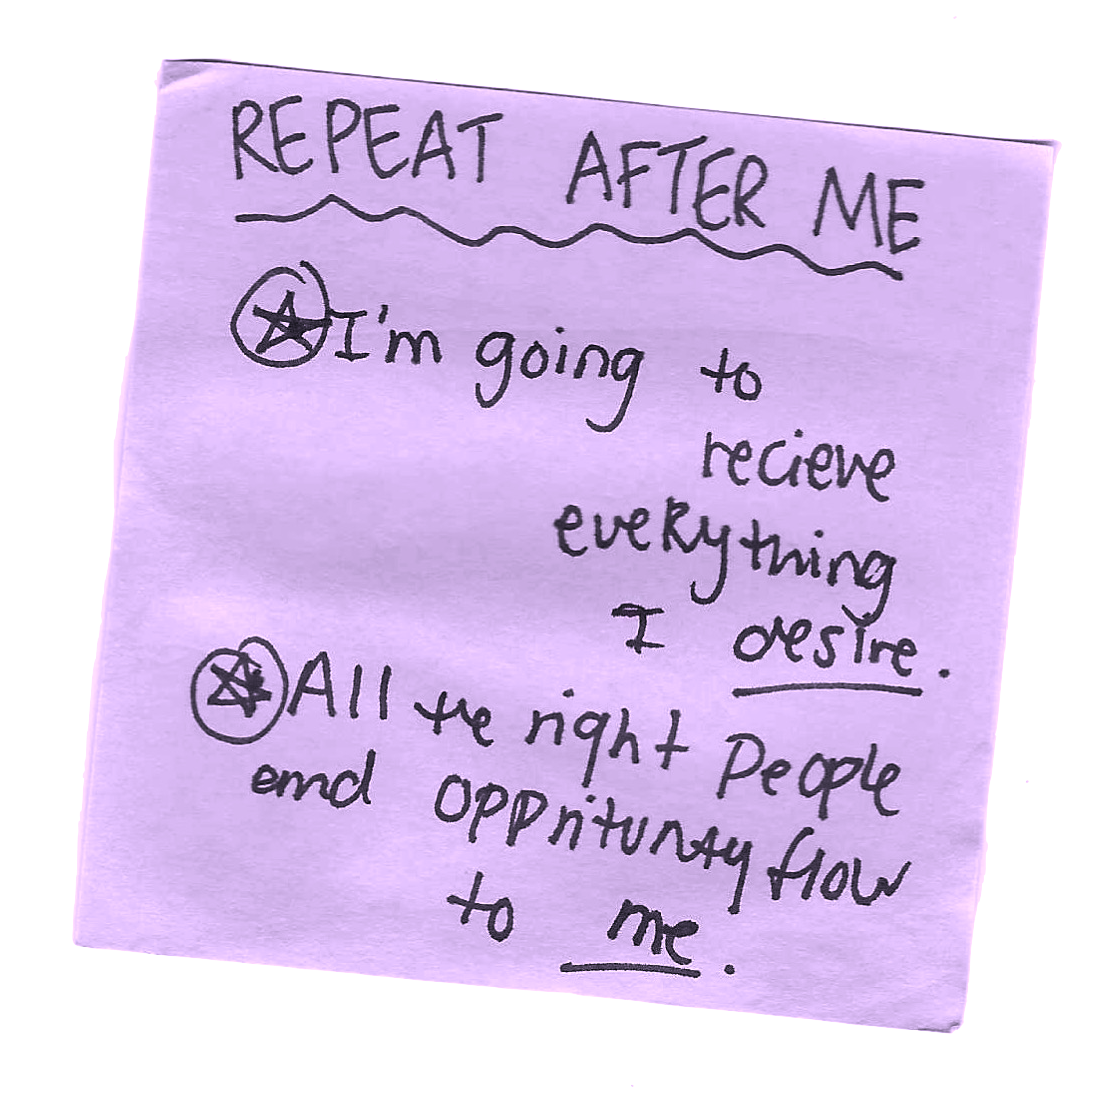 REPEAT AFTER ME
I'm going to
recieve
everything
I desire.
All the right people
and oppritunty flow
to me.